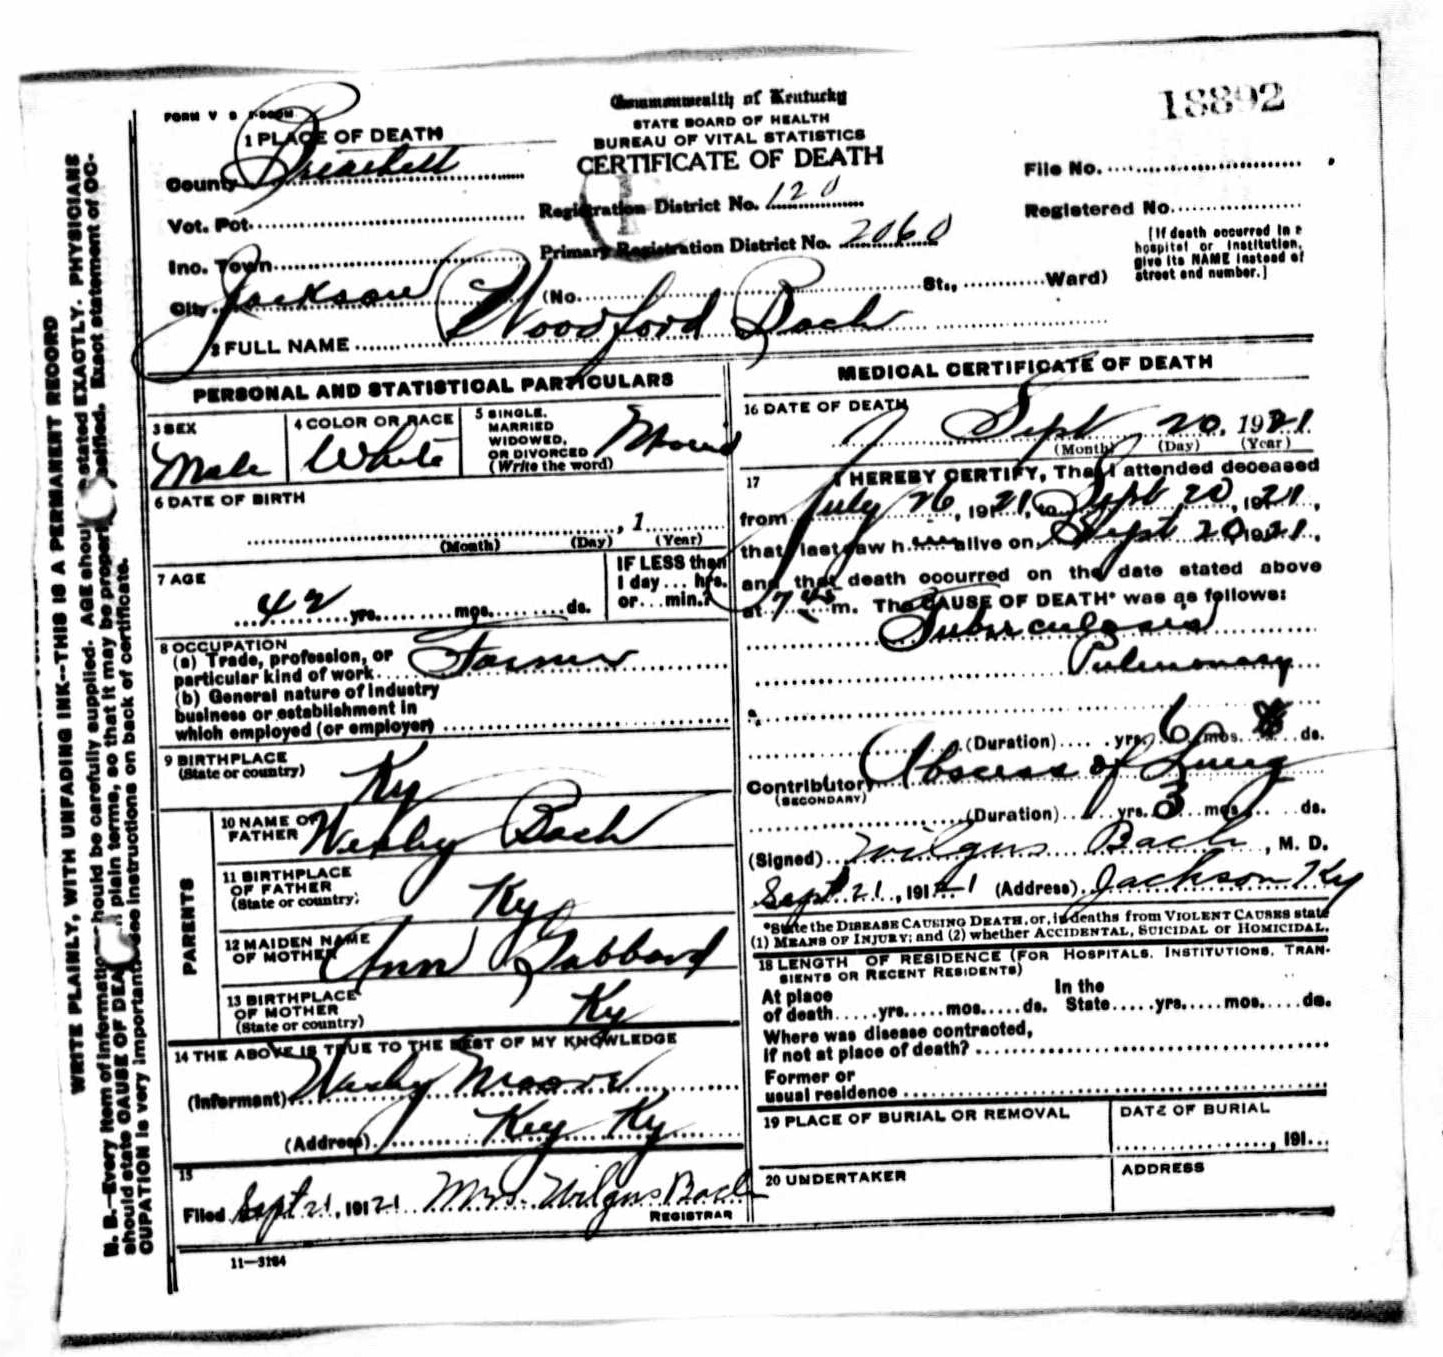 FORM V S
Commonwealth of Kentucky
STATE BOARD OF HEALTH
BUREAU OF VITAL STATISTICS
CERTIFICATE OF DEATH
18892
1 PLACE OF DEATH
County Breathitt
Vot. Pct.
Inc. Town
City Jackson
Registration District No. 120
Primary Registration District No. 2060
(No. St., Ward)
File No.
Registered No.
[If death occurred in a
hospital or institution,
give its NAME instead of
street and number.]
2 FULL NAME Woodford Bach
PERSONAL AND STATISTICAL PARTICULARS
3 SEX
Male
4 COLOR OR RACE
White
5 SINGLE,
MARRIED
WIDOWED,
OR DIVORCED
(Write the word)
6 DATE OF BIRTH
, 1
(Month) (Day) (Year)
7 AGE
42 yrs. mos. ds.
IF LESS than
1 day ... hrs.
or ... min.?
8 OCCUPATION
(a) Trade, profession, or
particular kind of work Farmer
(b) General nature of industry
business or establishment in
which employed (or employer)
9 BIRTHPLACE
(State or country)
Ky
PARENTS
10 NAME OF
FATHER Wesley Bach
11 BIRTHPLACE
OF FATHER
(State or country)
Ky
12 MAIDEN NAME
OF MOTHER Ann Gabbard
13 BIRTHPLACE
OF MOTHER
(State or country)
Ky
14 THE ABOVE IS TRUE TO THE BEST OF MY KNOWLEDGE
(Informant) Moore
(Address) Ky
15
Filed Sept 21, 191 21 Mrs. Wilgus Bach
REGISTRAR
11—3184
MEDICAL CERTIFICATE OF DEATH
16 DATE OF DEATH
Sept 20, 1921
(Month) (Day) (Year)
17 I HEREBY CERTIFY, That I attended deceased
from July 26, 1921, to Sept 20, 1921,
that I last saw h alive on Sept 20, 1921,
and that death occurred on the date stated above
at 7 45 m. The CAUSE OF DEATH* was as follows:
Tuberculosis
Pulmonary
(Duration) yrs. 6 mos. ds.
Contributory Abscess of Lung
(SECONDARY)
(Duration) yrs. 3 mos. ds.
(Signed) Wilgus Bach, M. D.
Sept 21, 191 21 (Address) Jackson Ky
*State the DISEASE CAUSING DEATH, or, in deaths from VIOLENT CAUSES state
(1) MEANS OF INJURY; and (2) whether ACCIDENTAL, SUICIDAL or HOMICIDAL.
18 LENGTH OF RESIDENCE (FOR HOSPITALS, INSTITUTIONS, TRAN-
SIENTS OR RECENT RESIDENTS)
At place In the
of death yrs. mos. ds. State yrs. mos. ds.
Where was disease contracted,
if not at place of death?
Former or
usual residence
19 PLACE OF BURIAL OR REMOVAL
DATE OF BURIAL
, 191
20 UNDERTAKER
ADDRESS
WRITE PLAINLY, WITH UNFADING INK--THIS IS A PERMANENT RECORD
N. B.—Every item of information should be carefully supplied. AGE should stated EXACTLY. PHYSICIANS
should state CAUSE OF DEATH plain terms, so that it may be properly Exact statement of OC-
CUPATION is very important. See instructions on back of certificate.